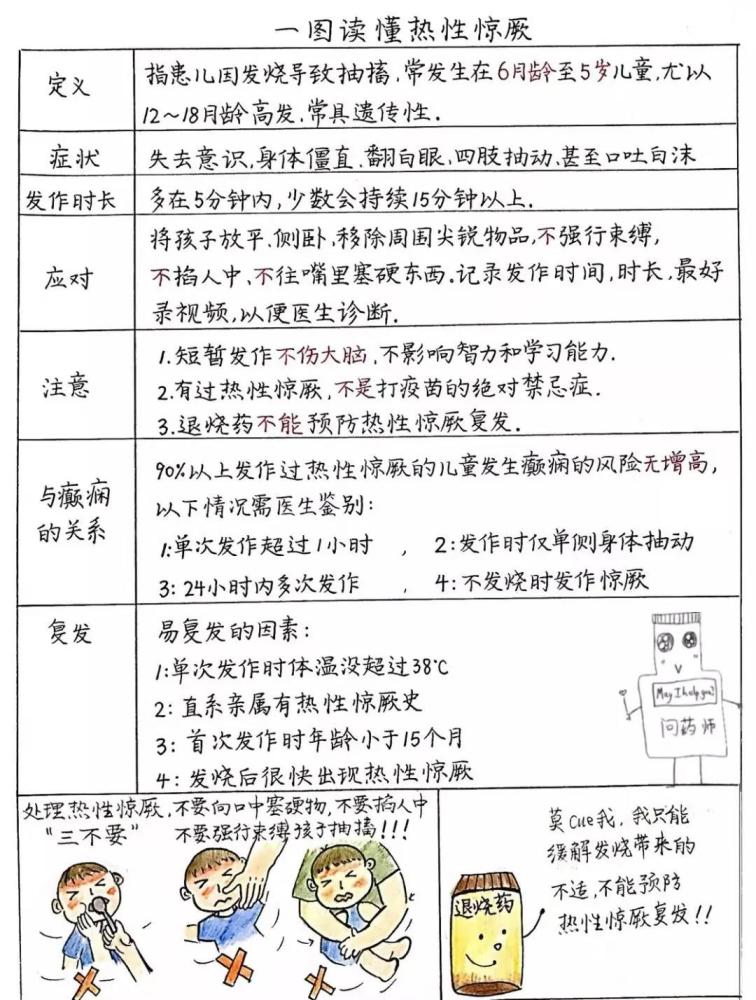 一图读懂热性惊厥
定义
指患儿因发烧导致抽搐,常发生在6月龄至5岁儿童,尤以
12~18月龄高发,常具遗传性.
症状
失去意识,身体僵直、翻白眼,四肢抽动,甚至口吐白沫
发作时长
多在5分钟内,少数会持续15分钟以上.
应对
将孩子放平、侧卧,移除周围尖锐物品,不强行束缚,
不掐人中、不往嘴里塞硬东西.记录发作时间,时长,最好
录视频,以便医生诊断.
注意
1.短暂发作不伤大脑,不影响智力和学习能力.
2.有过热性惊厥,不是打疫苗的绝对禁忌症.
3.退烧药不能预防热性惊厥复发.
与癫痫
的关系
90%以上发作过热性惊厥的儿童发生癫痫的风险无增高,
以下情况需医生鉴别:
1:单次发作超过1小时 , 2:发作时仅单侧身体抽动
3: 24小时内多次发作 , 4:不发烧时发作惊厥
复发
易复发的因素:
1:单次发作时体温没超过38℃
2: 直系亲属有热性惊厥史
3: 首次发作时年龄小于15个月
4: 发烧后很快出现热性惊厥
May I help you?
问药师
处理热性惊厥,不要向口中塞硬物,不要掐人中
“三不要” 不要强行束缚孩子抽搐!!!
莫Cue我,我只能
缓解发烧带来的
不适,不能预防
热性惊厥复发!!
退烧药